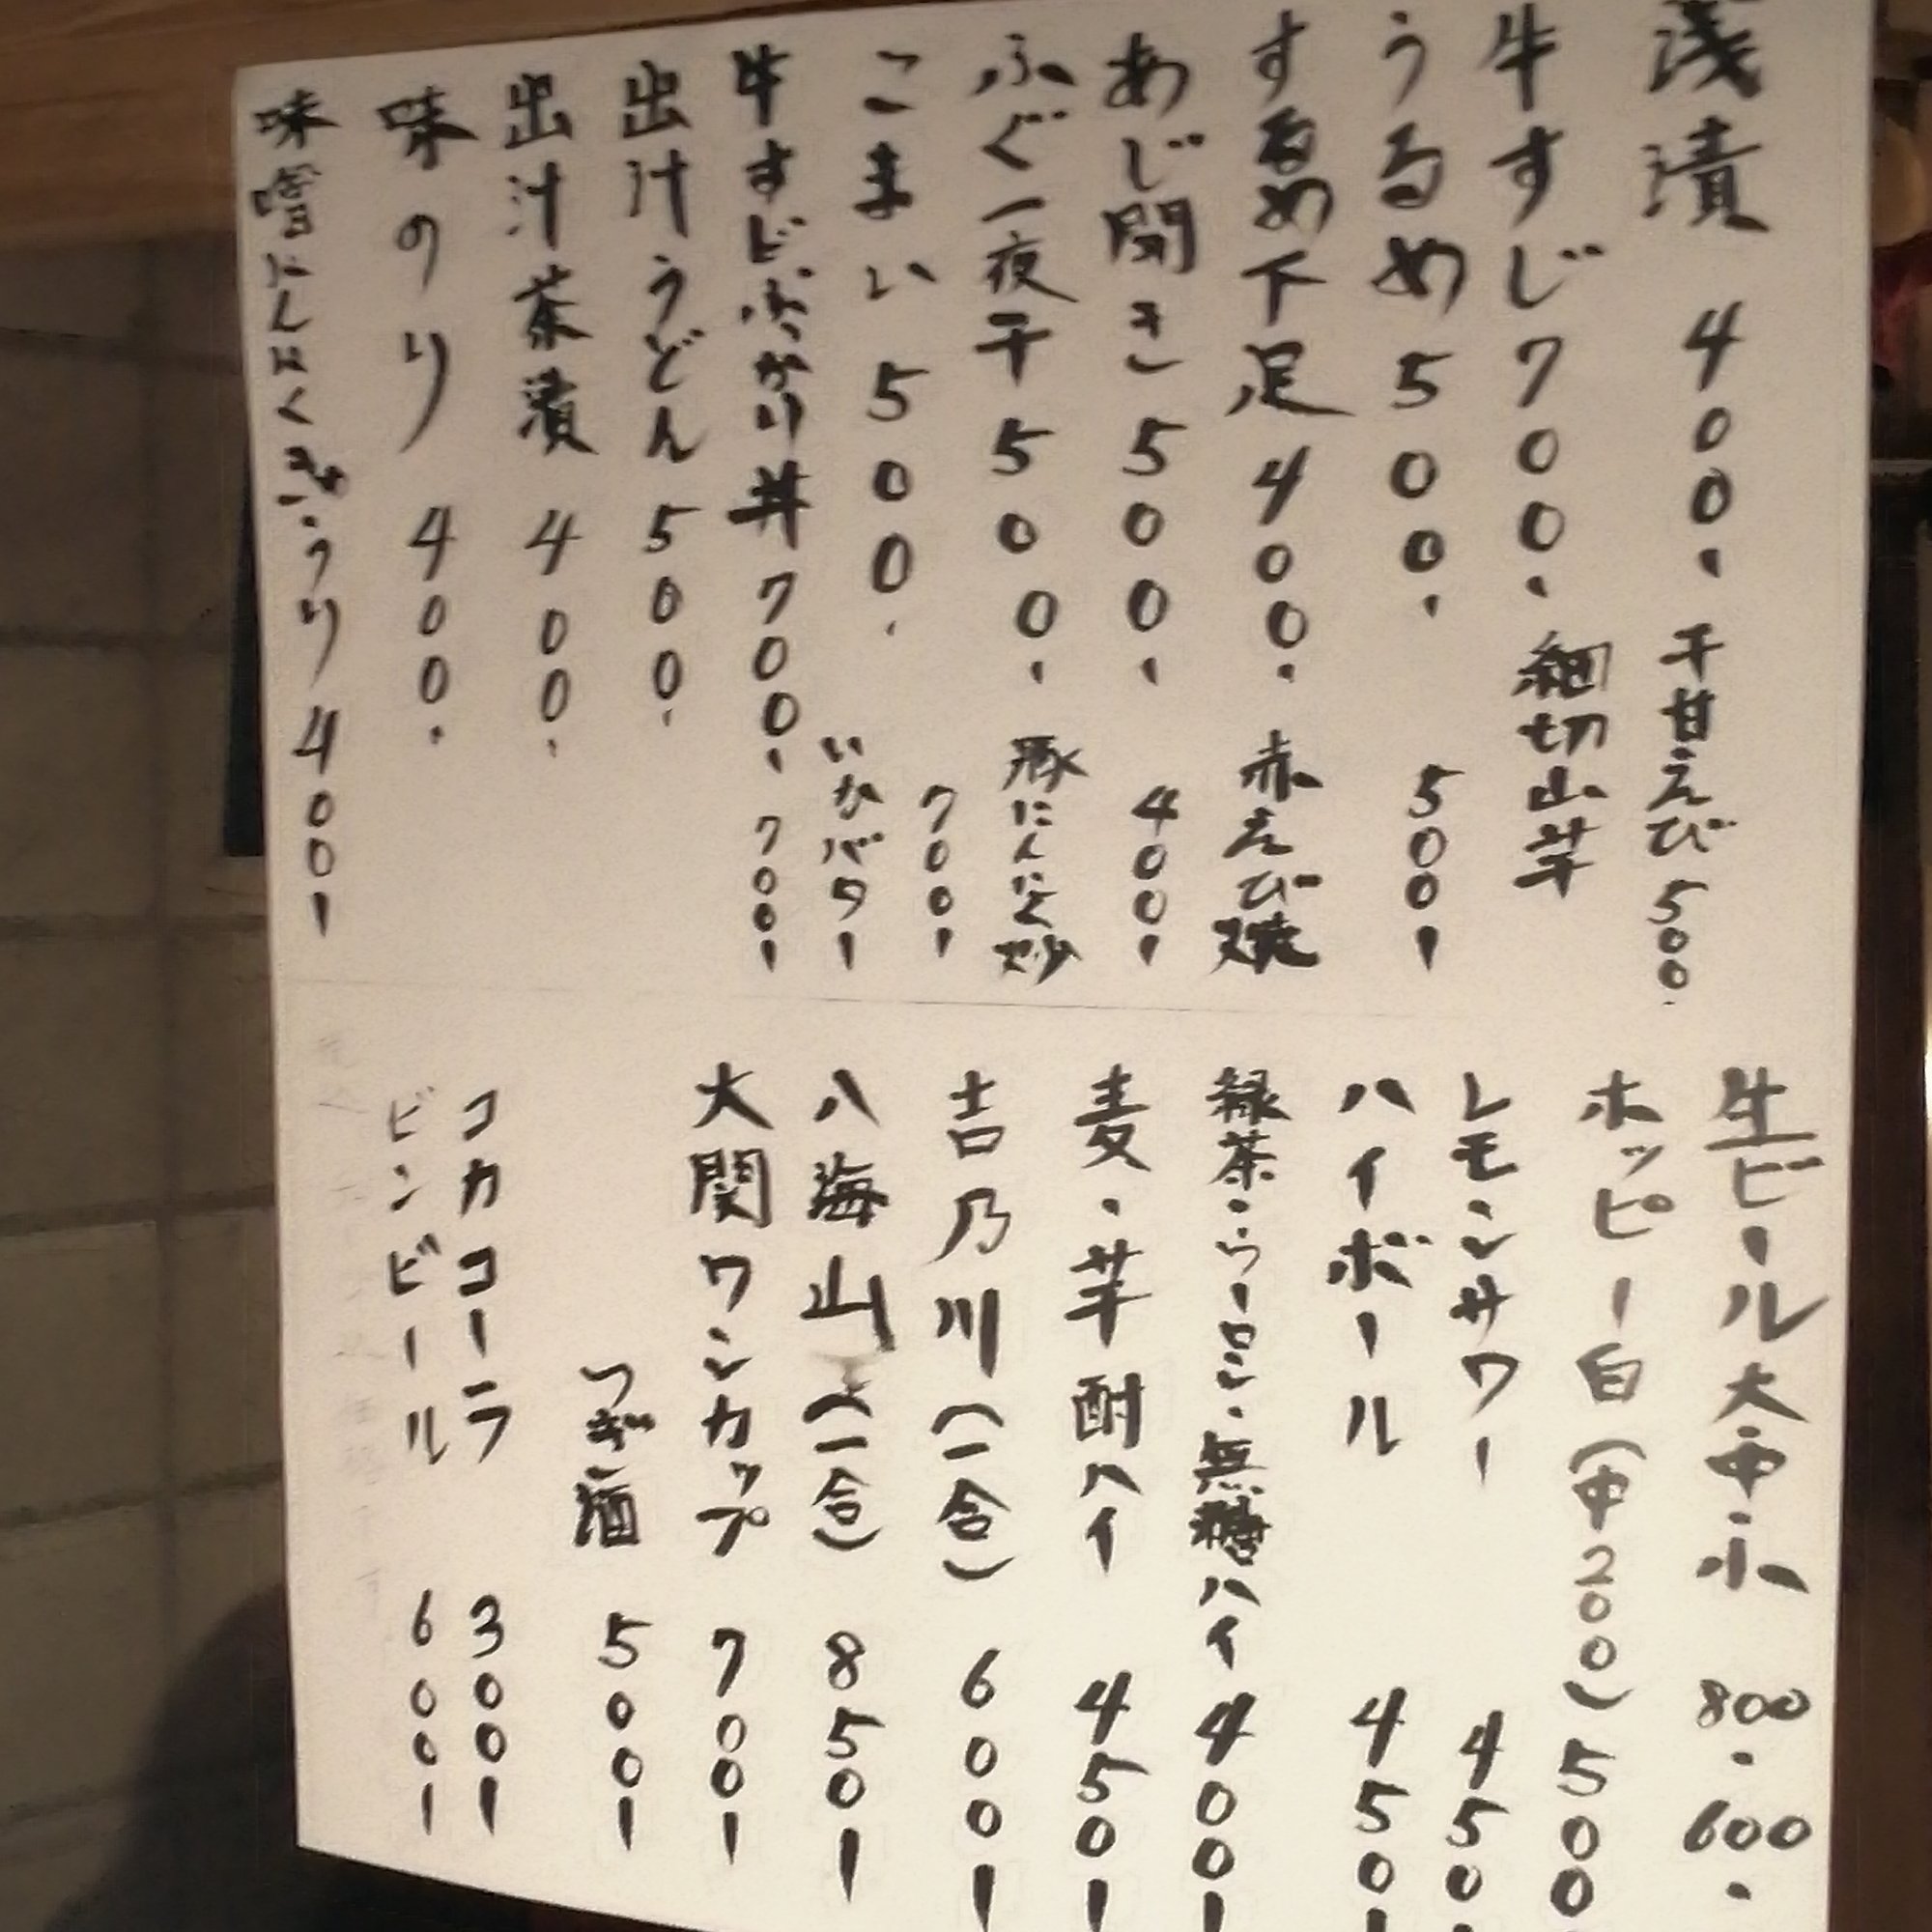 浅漬 400.
干甘えび 500.
牛すじ 700.
細切山芋 500ー
うるめ 500.
するめ下足 400.
赤えび焼 400ー
あじ開き 500.
ふぐ一夜干 500.
豚にんにく炒 700ー
こまい 500.
いかバター 700ー
牛すじぶっかけ丼 700.
出汁うどん 500.
出汁茶漬 400.
味のり 400.
味噌にんにくきゅうり 400ー
生ビール 大・中・小 800・600・
ホッピー白(中200) 500
レモンサワー 450
ハイボール 450ー
緑茶・ウーロン・無糖ハイ 400ー
麦・芋酎ハイ 450ー
吉乃川(一合) 600ー
八海山(一合) 850ー
大関ワンカップ 700ー
つぎ酒 500ー
コカコーラ 300ー
ビンビール 600ー